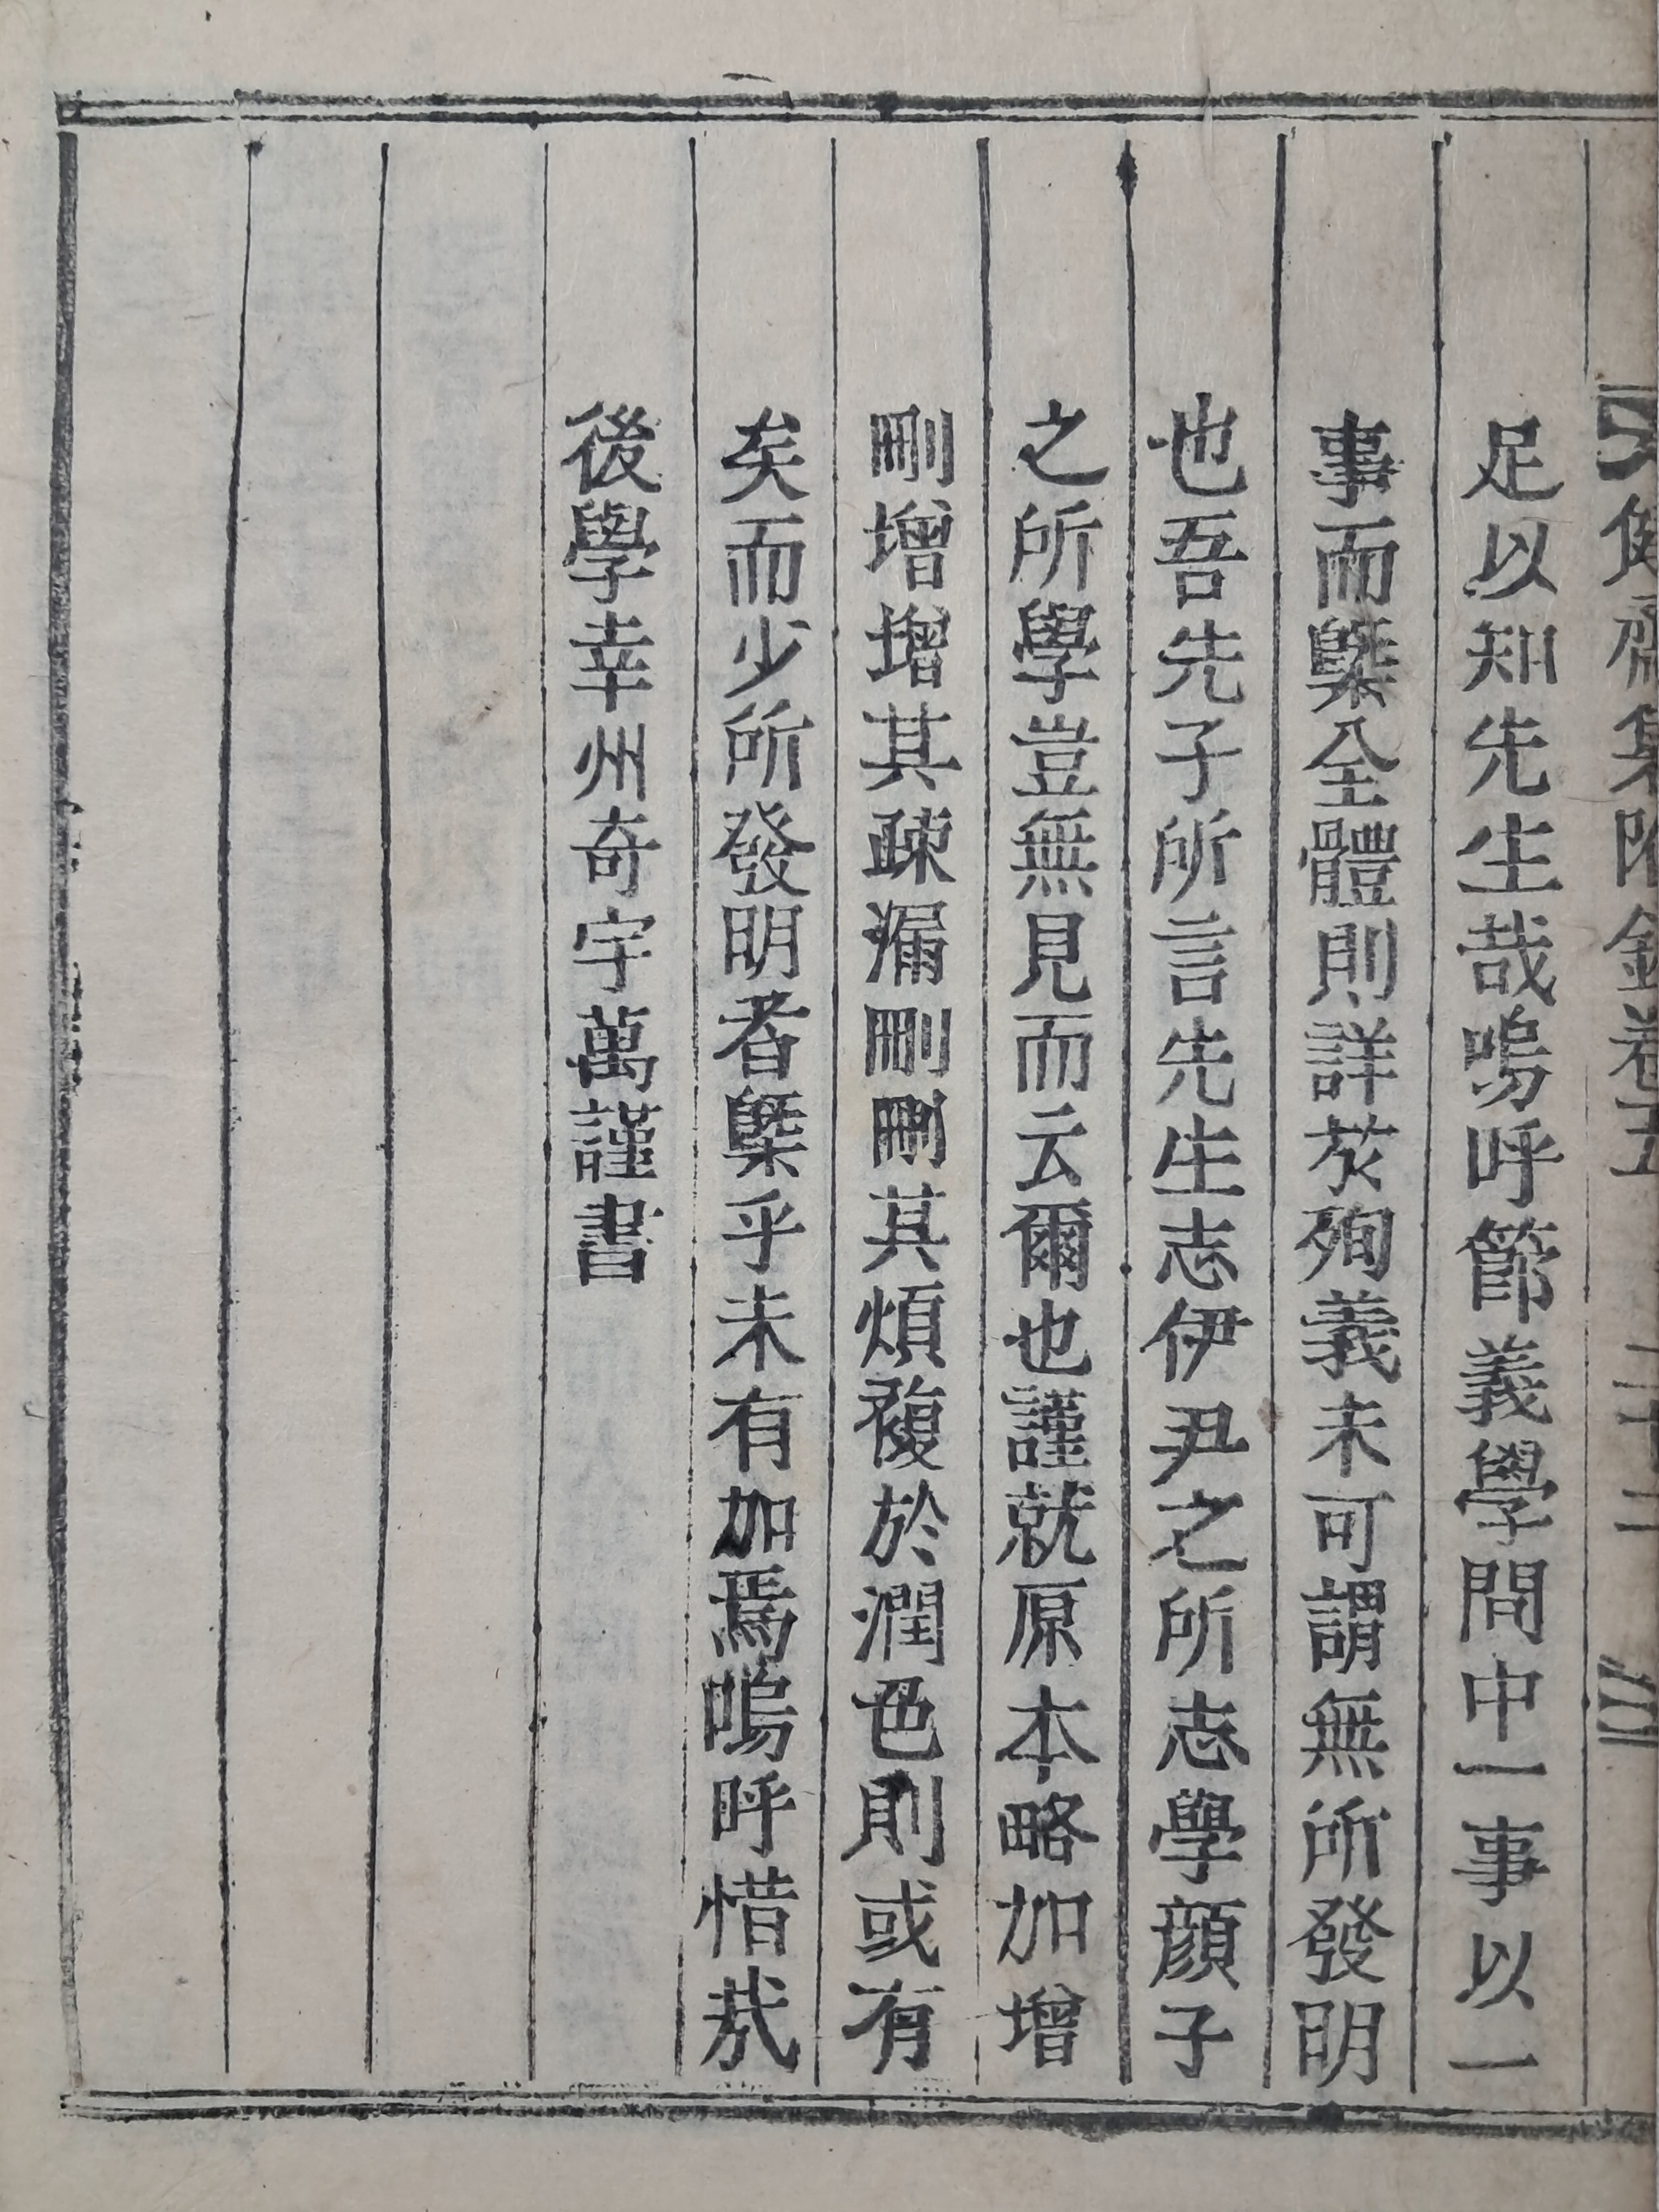 健齋集附錄卷五 二十二
足以知先生哉嗚呼節義學問中一事以一
事而槩全體則詳於殉義未可謂無所發明
也吾先子所言先生志伊尹之所志學顔子
之所學豈無見而云爾也謹就原本略加增
刪增增其疎漏刪刪其煩複於潤色則或有
矣而少所發明者槩乎未有加焉嗚呼惜哉
後學幸州奇宇萬謹書